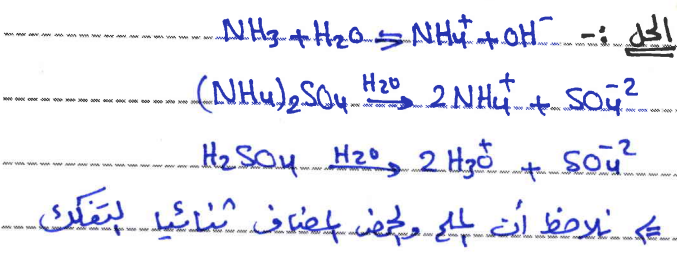 الحل :- NH3 + H2O ⇌ NH4+ + OH-
(NH4)2SO4 —H2O→ 2NH4+ + SO4-2
H2SO4 —H2O→ 2H3O+ + SO4-2
⇐ نلاحظ أن الملح والحمض المضاف ثنائيا التفكك